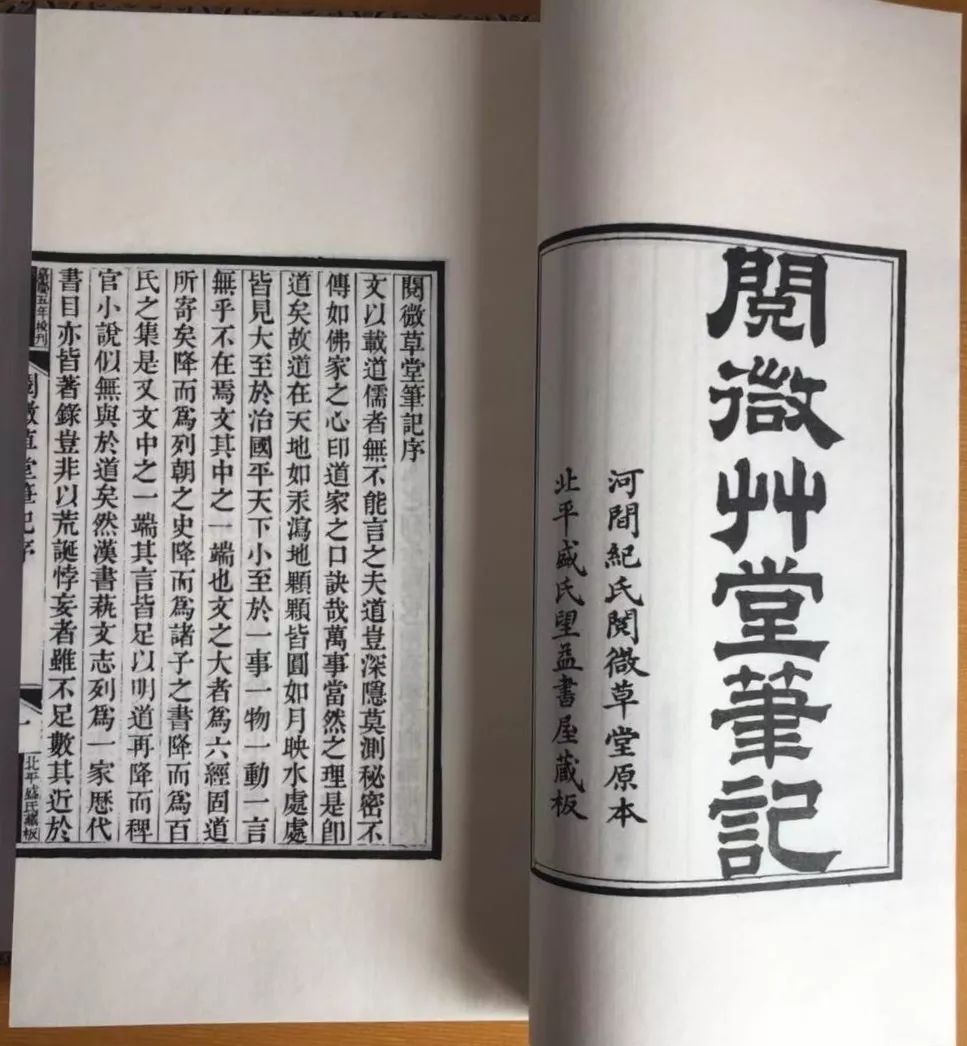 閱微艸堂筆記
河間紀氏閱微草堂原本
北平盛氏望益書屋藏板
閱微草堂筆記序
文以載道儒者無不能言之夫道豈深隱莫測秘密不
傳如佛家之心印道家之口訣哉萬事當然之理是卽
道矣故道在天地如汞瀉地顆顆皆圓如月映水處處
皆見大至於治國平天下小至於一事一物一動一言
無乎不在焉文其中之一端也文之大者爲六經固道
所寄矣降而爲列朝之史降而爲諸子之書降而爲百
氏之集是又文中之一端其言皆足以明道再降而稗
官小說似無與於道矣然漢書蓺文志列爲一家歷代
書目亦皆著錄豈非以荒誕悖妄者雖不足數其近於
嘉慶五年校刊
閱微草堂筆記序
一
北平盛氏藏板